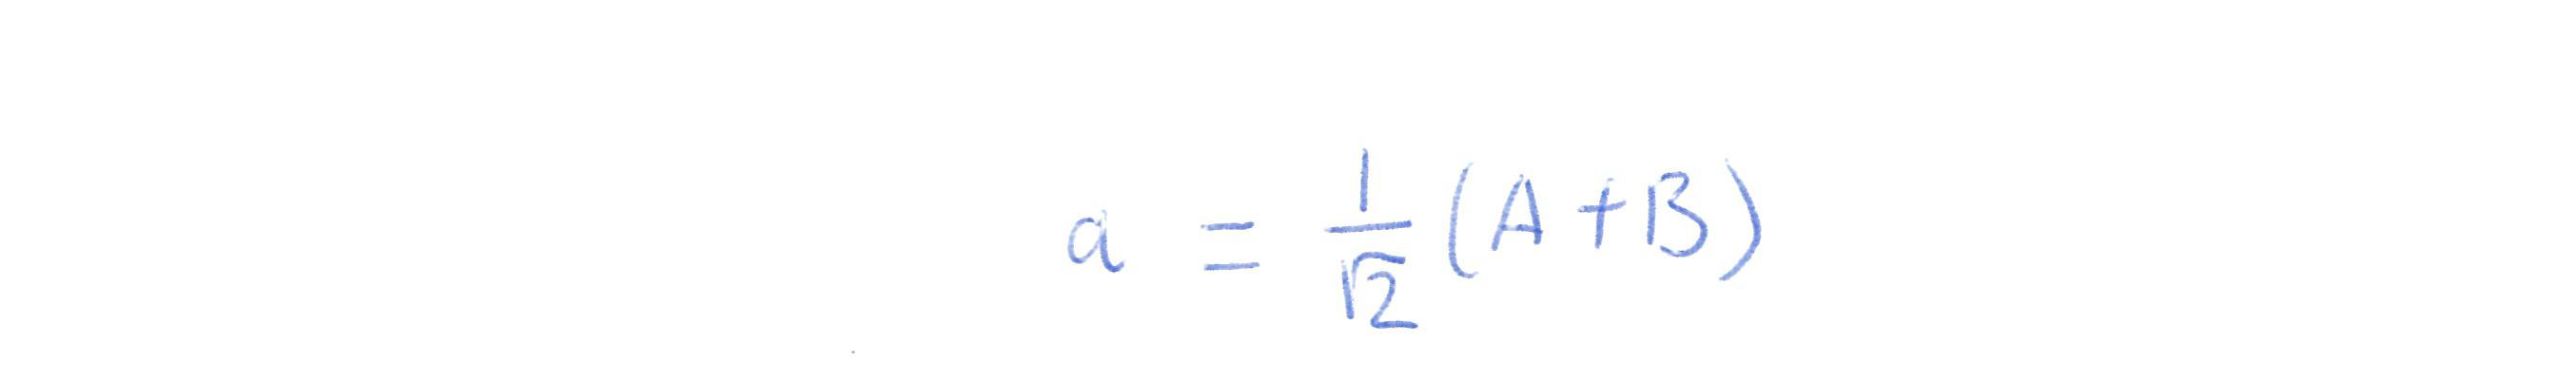 a = 1/√2 (A+B)